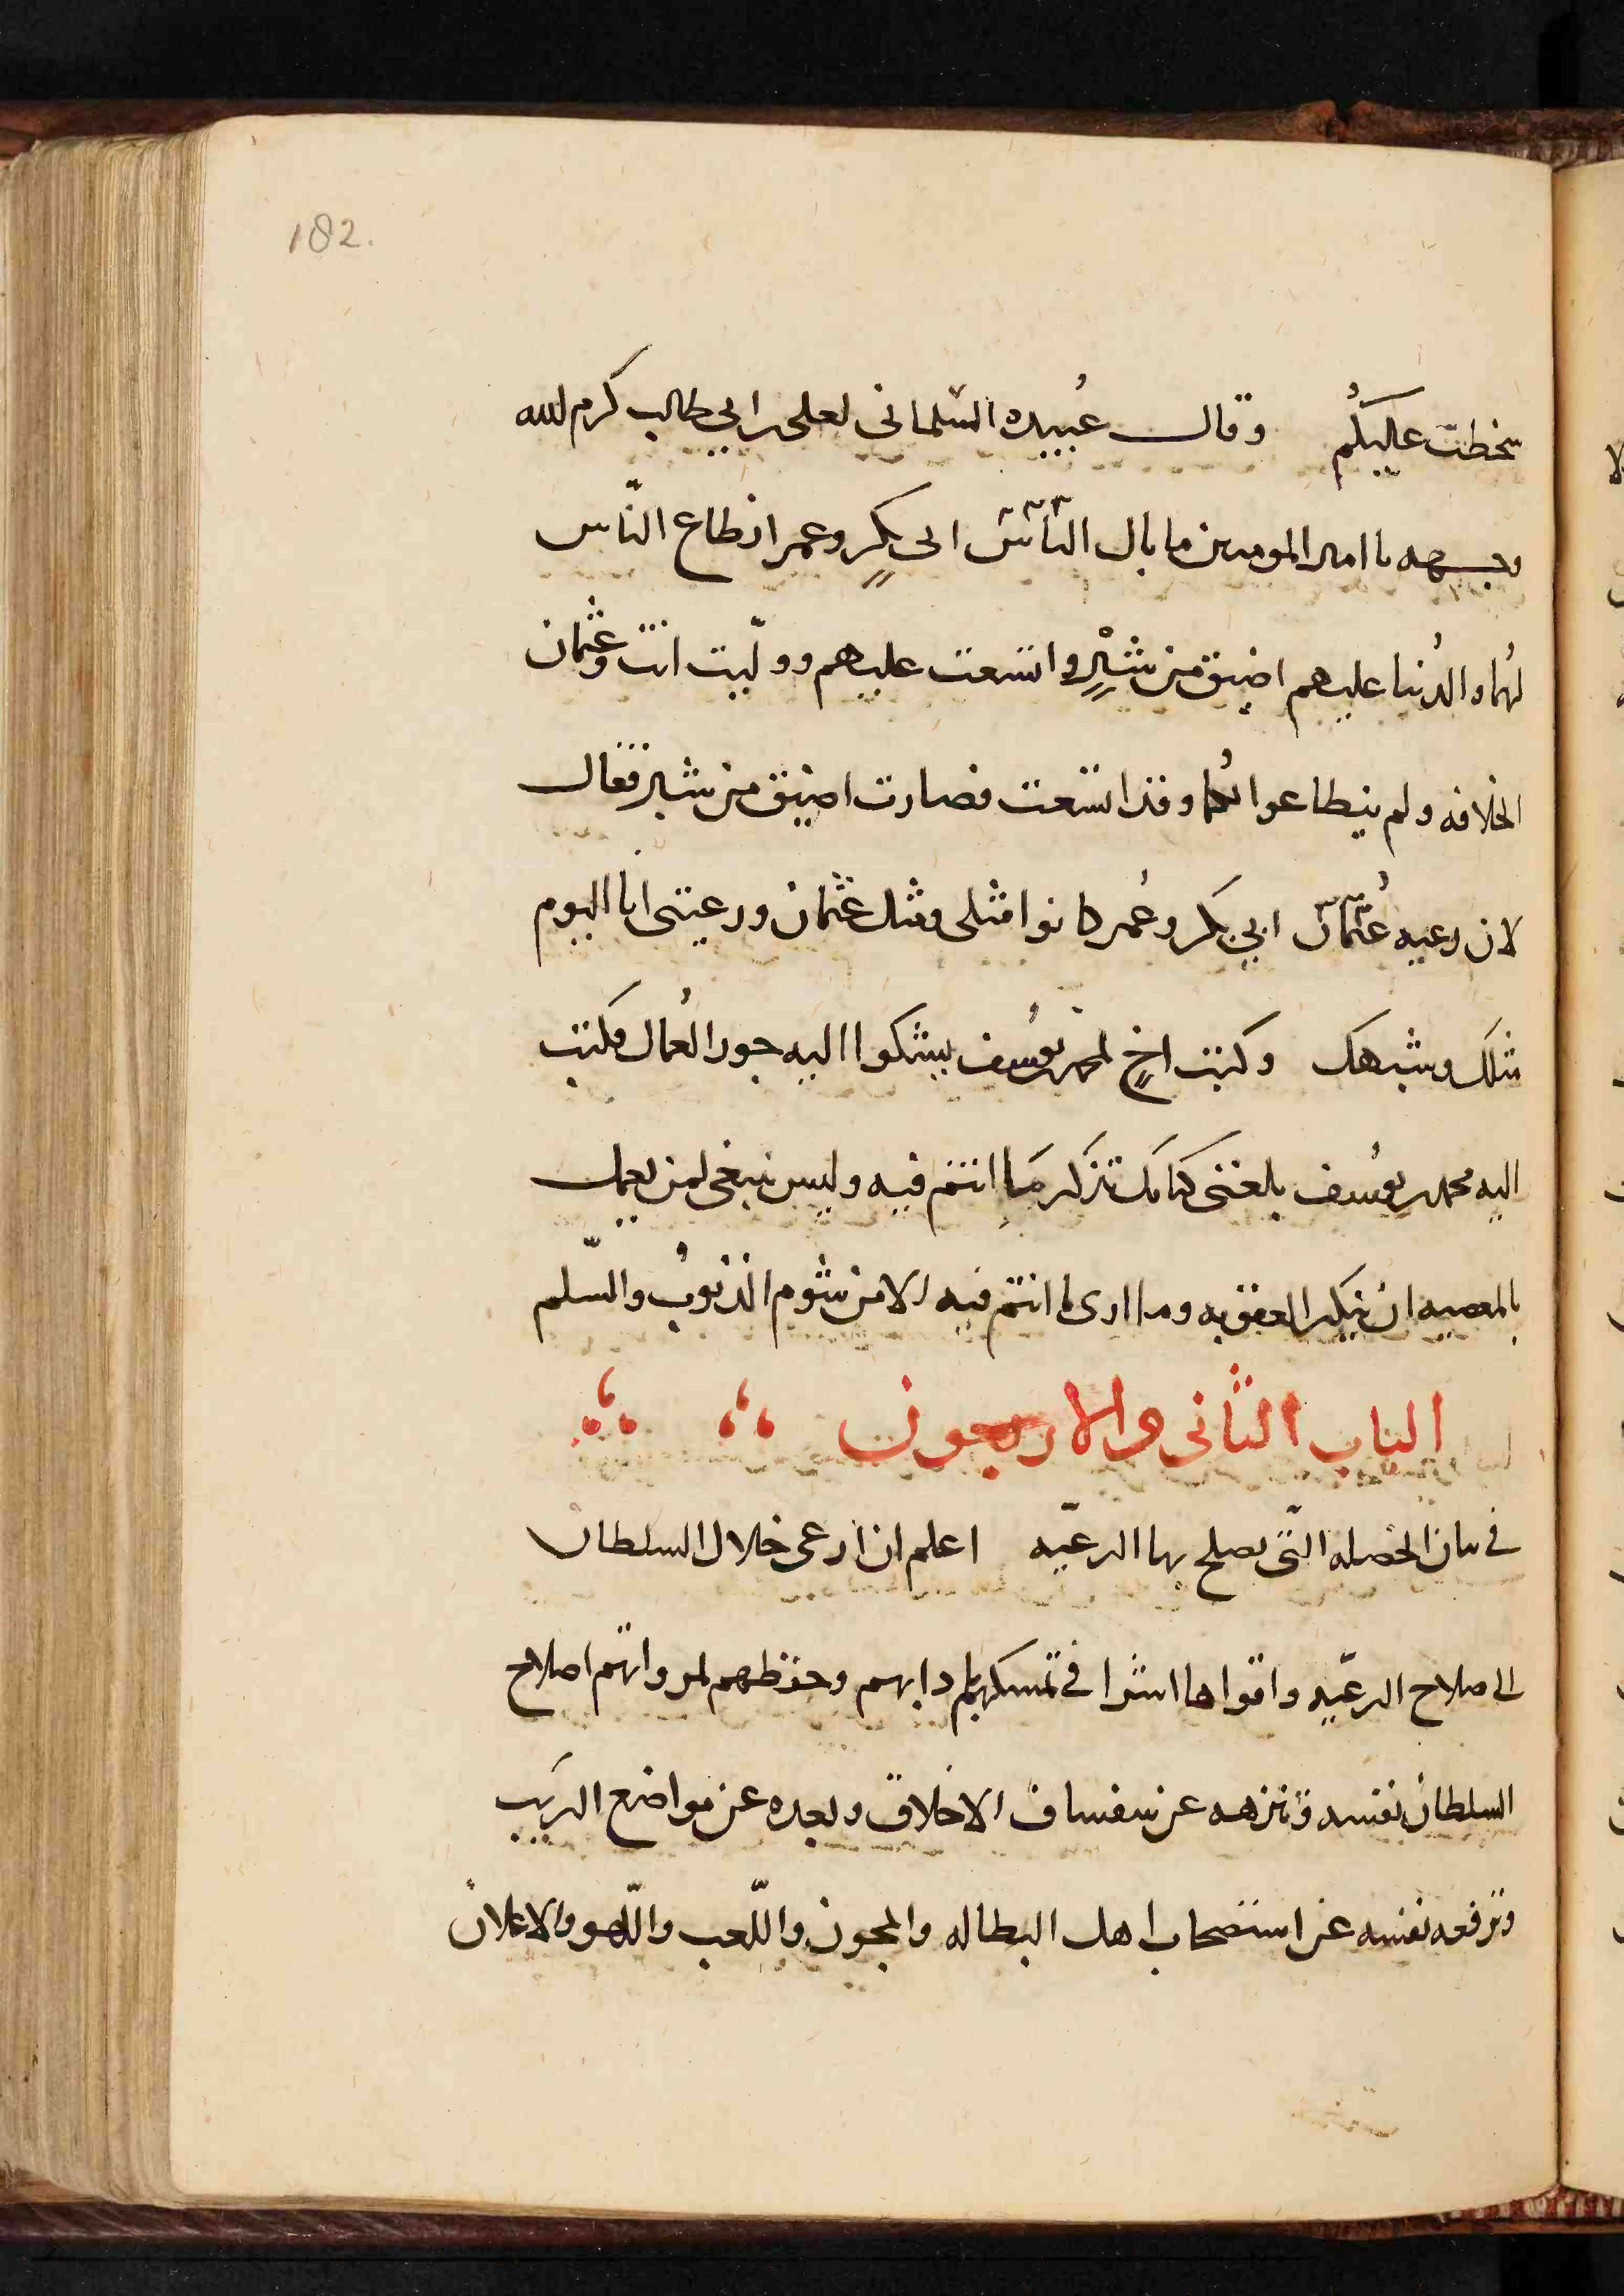 182.
سخطت عليكُم وقال عُبيده السّلمانى لعلى بن ابي طالب كرم الله
وجهه يا امير المومنين ما بال النّاسّ ابى بكرٍ وعمر انطاع النّاس
لهُما والدُنيا عليهم اضيق من شبْرٍ واتسعت عليهم ووليّت انت وعُثمان
الخلافه ولم ينطاعوا لكُما وقد اتسعت فصارت اضيق من شبر فقال
لان رعيه عُثمان ابي بكر وعُمر كانوا مثلى ومثل عثمان ورعيتى انا اليوم
مثلك وشبهك وكتب اخٍ لمحمد بن يوُسف يشكوا اليه جور العُمال فكتب
اليه محمد بن يوُسف بلغنى كتابك تذكر مَا انتم فيه وليس ينبغى لمن يعمل
بالمعصيه ان ينكر العقوبه وما ارى ما انتم فيه الا من شوم الذنوُب والسّلم
الباب الثانى والاربعون
فى بيان الخصله الّتى يصلح بها الرعيّه اعلم ان ادعى خلال السلطان
الى صلاح الرعيّه واقواها اثرا فى تمسكهم باديانهم وحفظهم لمرواتهم اصلاح
السلطان نفسه وتنزهه عن سفساف الاخلاق وبعده عن مواضع الريَب
وترفعه نفسه عن استصحاب اهل البطاله والمجون واللّعب واللّهو والاعلان